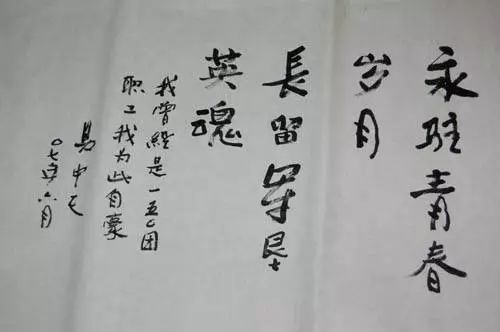 永駐青春
岁月
長留军垦
英魂
我曾经是一五〇团
职工我为此自豪
易中天
〇七年六月